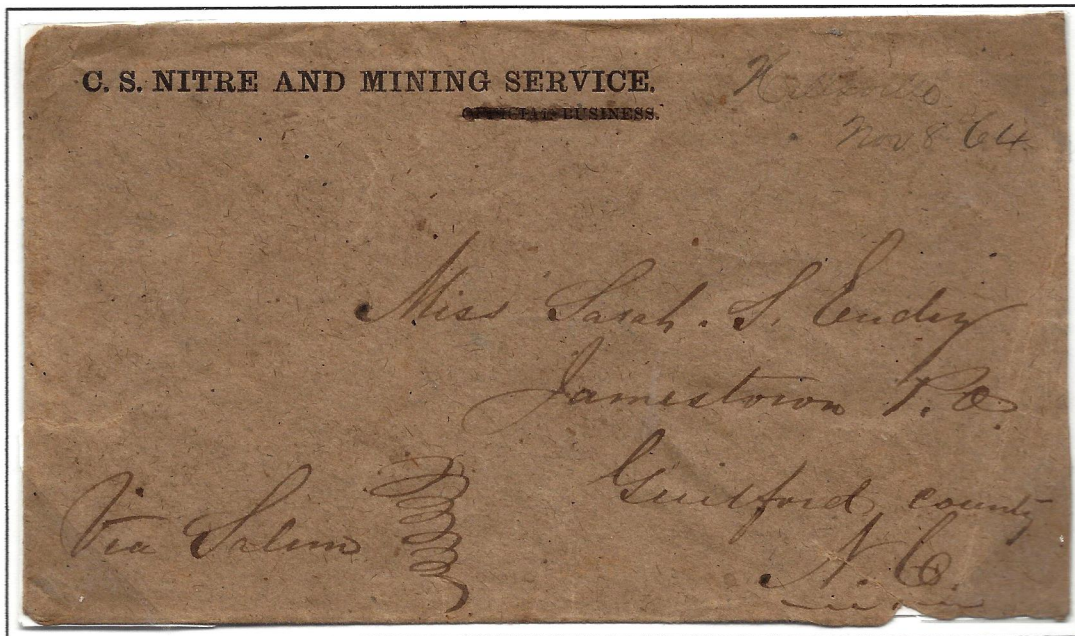 C. S. NITRE AND MINING SERVICE.
OFFICIAL BUSINESS.
Nov 8 64
Miss Sarah. S. Endey
Jamestown P.O.
Guilford, county
Via Salem
N. C.